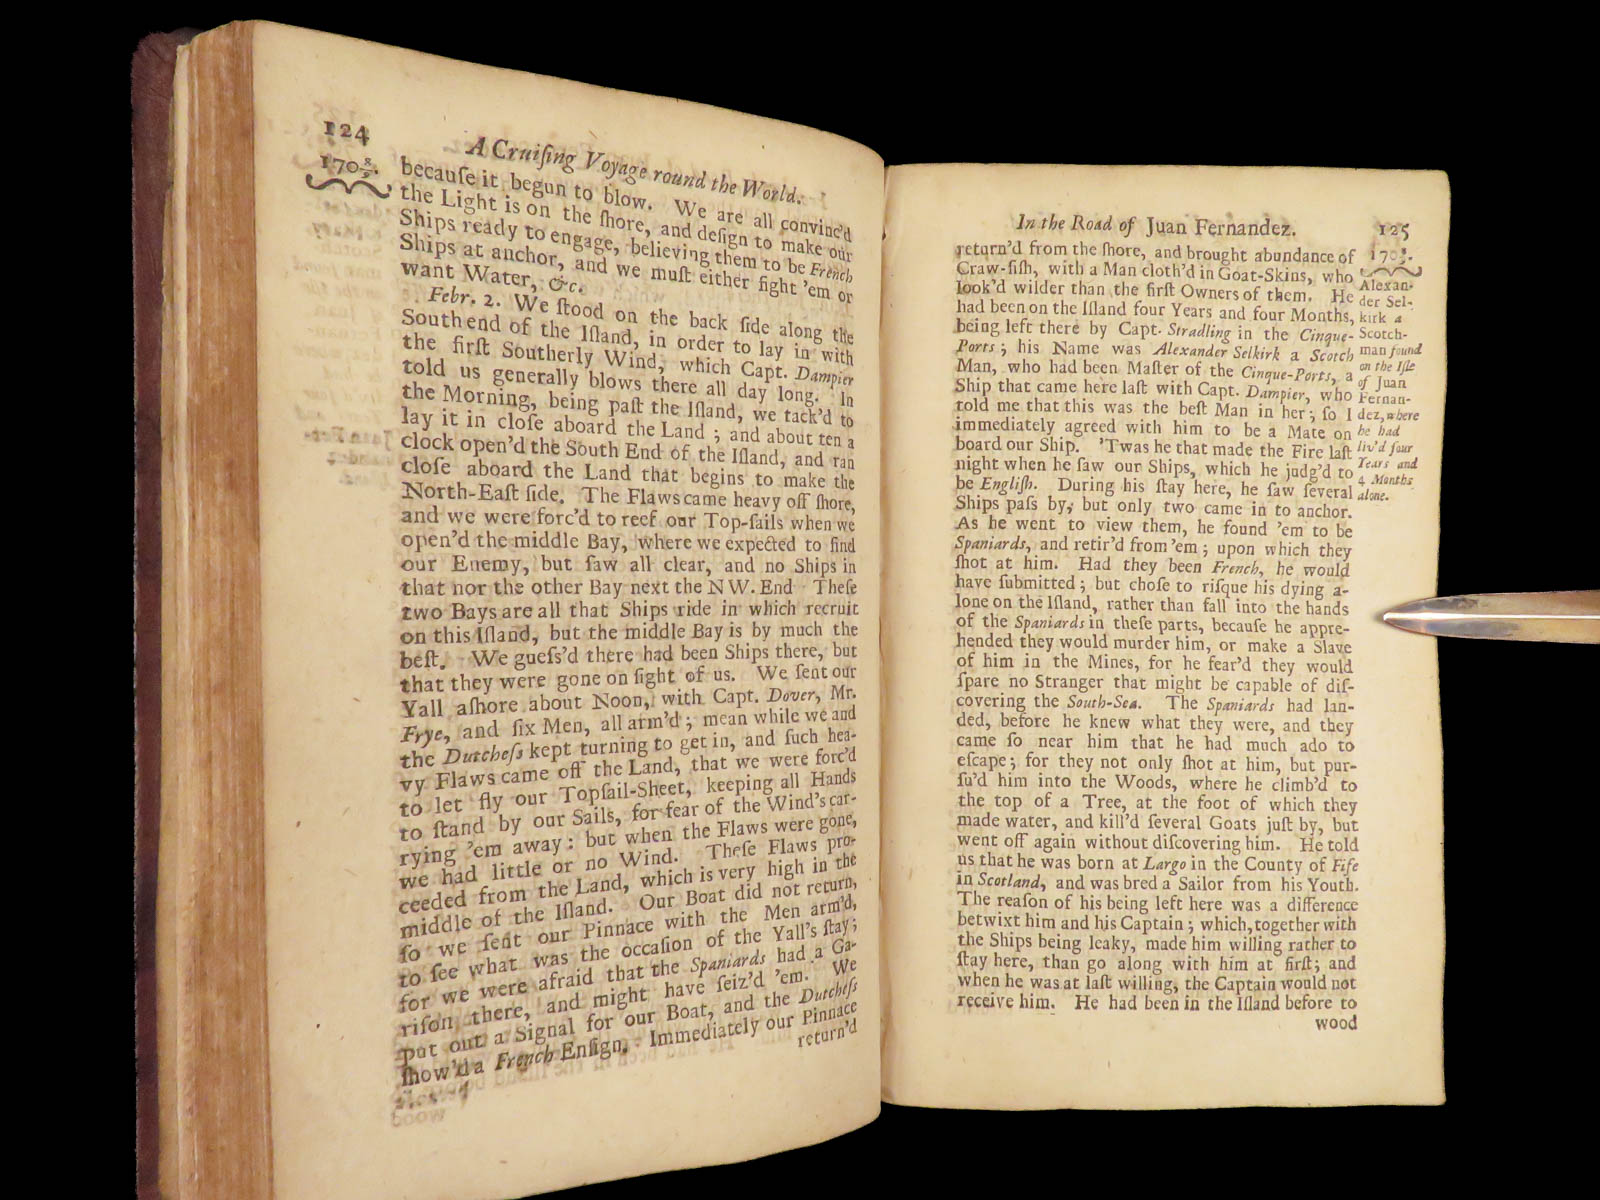 124
A Cruiſing Voyage round the World.
170 8/9.
becauſe it begun to blow. We are all convinc'd
the Light is on the ſhore, and deſign to make our
Ships ready to engage, believing them to be French
Ships at anchor, and we muſt either fight 'em or
want Water, &c.
Febr. 2. We ſtood on the back ſide along the
South end of the Iſland, in order to lay in with
the firſt Southerly Wind, which Capt. Dampier
told us generally blows there all day long. In
the Morning, being paſt the Iſland, we tack'd to
lay it in cloſe aboard the Land; and about ten a
clock open'd the South End of the Iſland, and ran
cloſe aboard the Land that begins to make the
North-Eaſt ſide. The Flaws came heavy off ſhore,
and we were forc'd to reef our Top-ſails when we
open'd the middle Bay, where we expected to find
our Enemy, but ſaw all clear, and no Ships in
that nor the other Bay next the NW. End Theſe
two Bays are all that Ships ride in which recruit
on this Iſland, but the middle Bay is by much the
beſt. We gueſs'd there had been Ships there, but
that they were gone on ſight of us. We ſent our
Yall aſhore about Noon, with Capt. Dover, Mr.
Frye, and ſix Men, all arm'd; mean while we and
the Dutcheſs kept turning to get in, and ſuch hea-
vy Flaws came off the Land, that we were forc'd
to let fly our Topſail-Sheet, keeping all Hands
to ſtand by our Sails, for fear of the Wind's car-
rying 'em away: but when the Flaws were gone,
we had little or no Wind. Theſe Flaws pro-
ceeded from the Land, which is very high in the
middle of the Iſland. Our Boat did not return,
ſo we ſent our Pinnace with the Men arm'd,
to ſee what was the occaſion of the Yall's ſtay;
for we were afraid that the Spaniards had a Ga-
riſon there, and might have ſeiz'd 'em. We
put out a Signal for our Boat, and the Dutcheſs
ſhow'd a French Enſign. Immediately our Pinnace
return'd
In the Road of Juan Fernandez.
125
170 8/9.
return'd from the ſhore, and brought abundance of
Craw-fiſh, with a Man cloth'd in Goat-Skins, who
look'd wilder than the firſt Owners of them. He
had been on the Iſland four Years and four Months,
being left there by Capt. Stradling in the Cinque-
Ports; his Name was Alexander Selkirk a Scotch
Man, who had been Maſter of the Cinque-Ports, a
Ship that came here laſt with Capt. Dampier, who
told me that this was the beſt Man in her; ſo I
immediately agreed with him to be a Mate on
board our Ship. 'Twas he that made the Fire laſt
night when he ſaw our Ships, which he judg'd to
be Engliſh. During his ſtay here, he ſaw ſeveral
Ships paſs by, but only two came in to anchor.
As he went to view them, he found 'em to be
Spaniards, and retir'd from 'em; upon which they
ſhot at him. Had they been French, he would
have ſubmitted; but choſe to riſque his dying a-
lone on the Iſland, rather than fall into the hands
of the Spaniards in theſe parts, becauſe he appre-
hended they would murder him, or make a Slave
of him in the Mines, for he fear'd they would
ſpare no Stranger that might be capable of diſ-
covering the South-Sea. The Spaniards had lan-
ded, before he knew what they were, and they
came ſo near him that he had much ado to
eſcape; for they not only ſhot at him, but pur-
ſu'd him into the Woods, where he climb'd to
the top of a Tree, at the foot of which they
made water, and kill'd ſeveral Goats juſt by, but
went off again without diſcovering him. He told
us that he was born at Largo in the County of Fife
in Scotland, and was bred a Sailor from his Youth.
The reaſon of his being left here was a difference
betwixt him and his Captain; which, together with
the Ships being leaky, made him willing rather to
ſtay here, than go along with him at firſt; and
when he was at laſt willing, the Captain would not
receive him. He had been in the Iſland before to
wood
Alexan-
der Sel-
kirk a
Scotch-
man found
on the Iſle
of Juan
Fernan-
dez, where
he had
liv'd four
Years and
4 Months
alone.